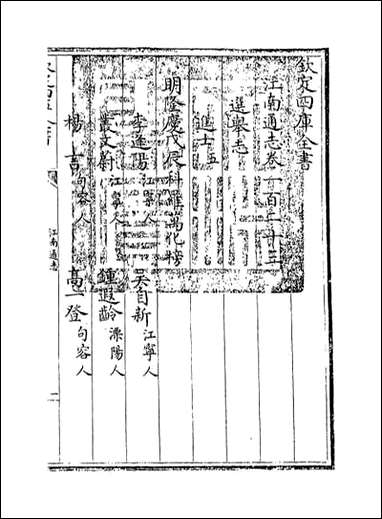 欽定四庫全書
江南通志卷一百二十三
選舉志
進士五
明隆慶戊辰科羅萬化榜
李逢陽江寧人 吳自新江寧人
叢文蔚江寧人 鍾遐齡溧陽人
楊言句容人 高一登句容人
江南通志